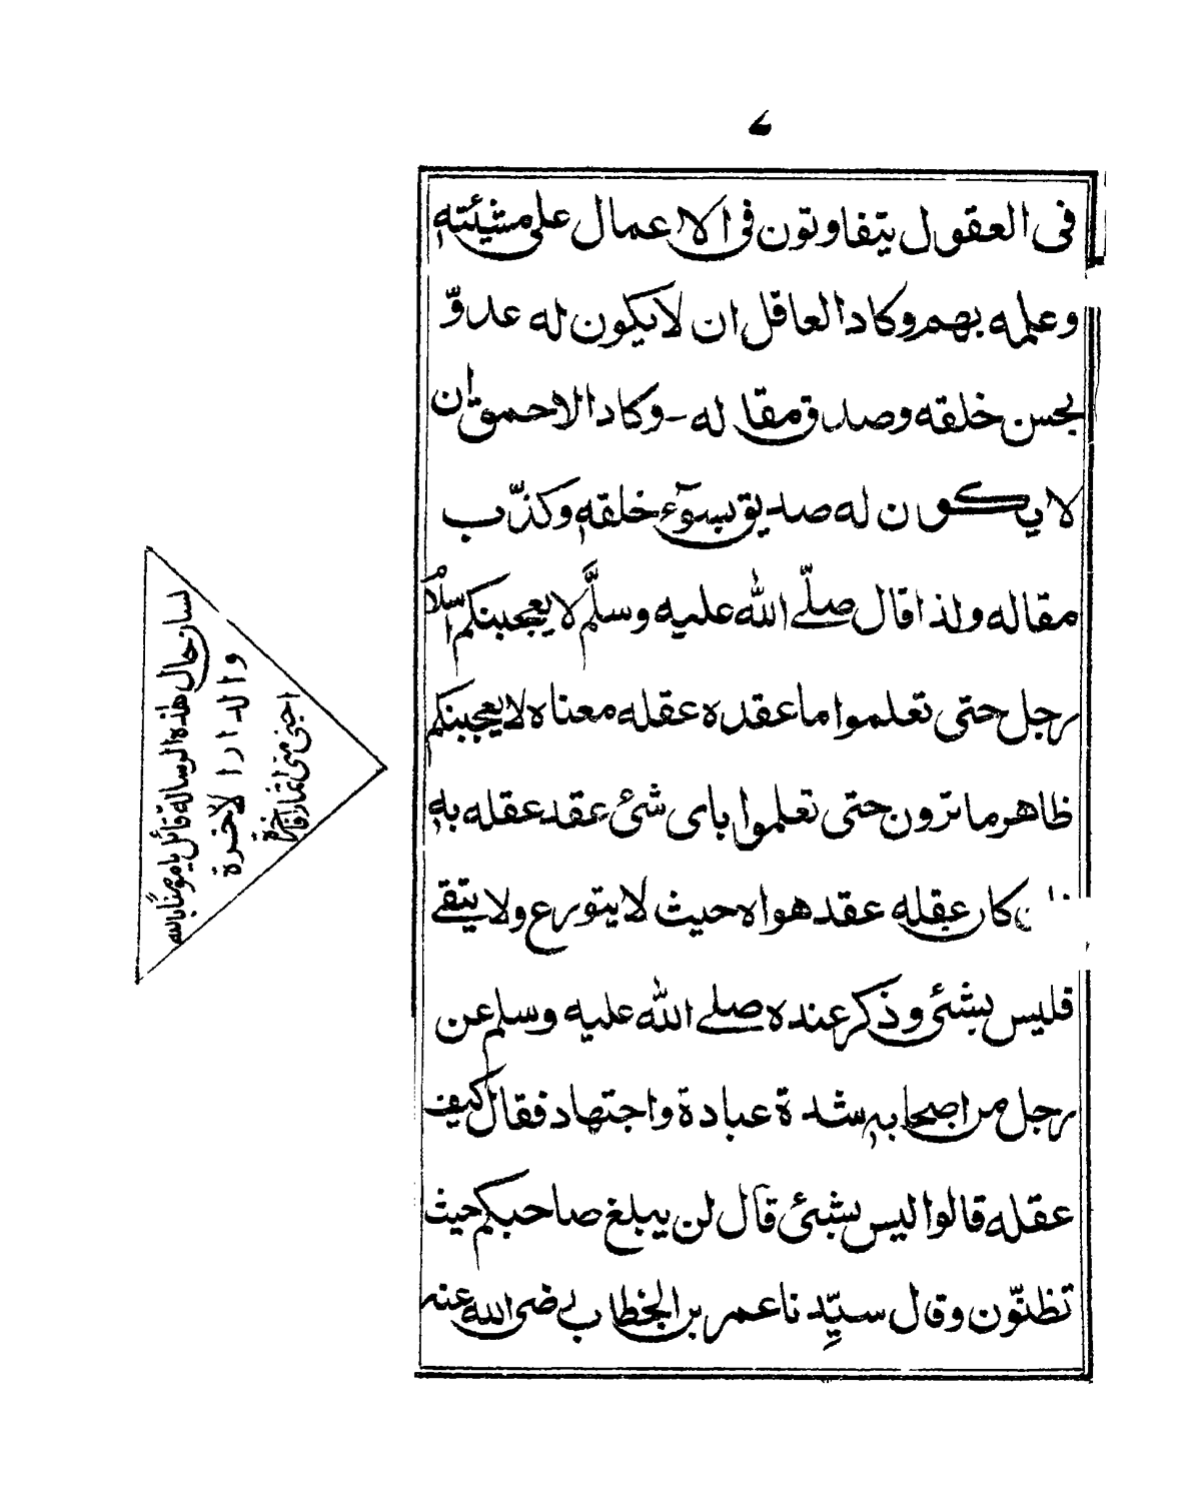 في العقول يتفاوتون في الاعمال على مشيئته
وعلمه بهم وكاد العاقل ان لا يكون له عدوّ
بحسن خلقه وصدق مقاله - وكاد الاحمق ان
لا يكون له صديق بسوٓء خلقه وكذّب
مقاله ولذا قال صلّے الله عليه وسلَّم لا يعجبنكم اسلام
رجل حتى تعلموا ما عقده عقله معناه لا يعجبنكم
ظاهر ما ترون حتى تعلموا باى شئ عقد عقله به
كان عقله عقد هواه حيث لا يتورع ولا يتقے
فليس بشئ وذكر عنده صلے الله عليه وسلم عن
رجل من اصحابه شدة عبادة واجتهاد فقال كيف
عقله قالوا ليس بشئ قال لن يبلغ صاحبكم حيث
تظنّون وقال سيّدنا عمر بن الخطاب رضى الله عنه
لسان حال هذه الرسالة قائل يا مومنًا بالله
والدار الاخرة
اجنى منى ثمارا